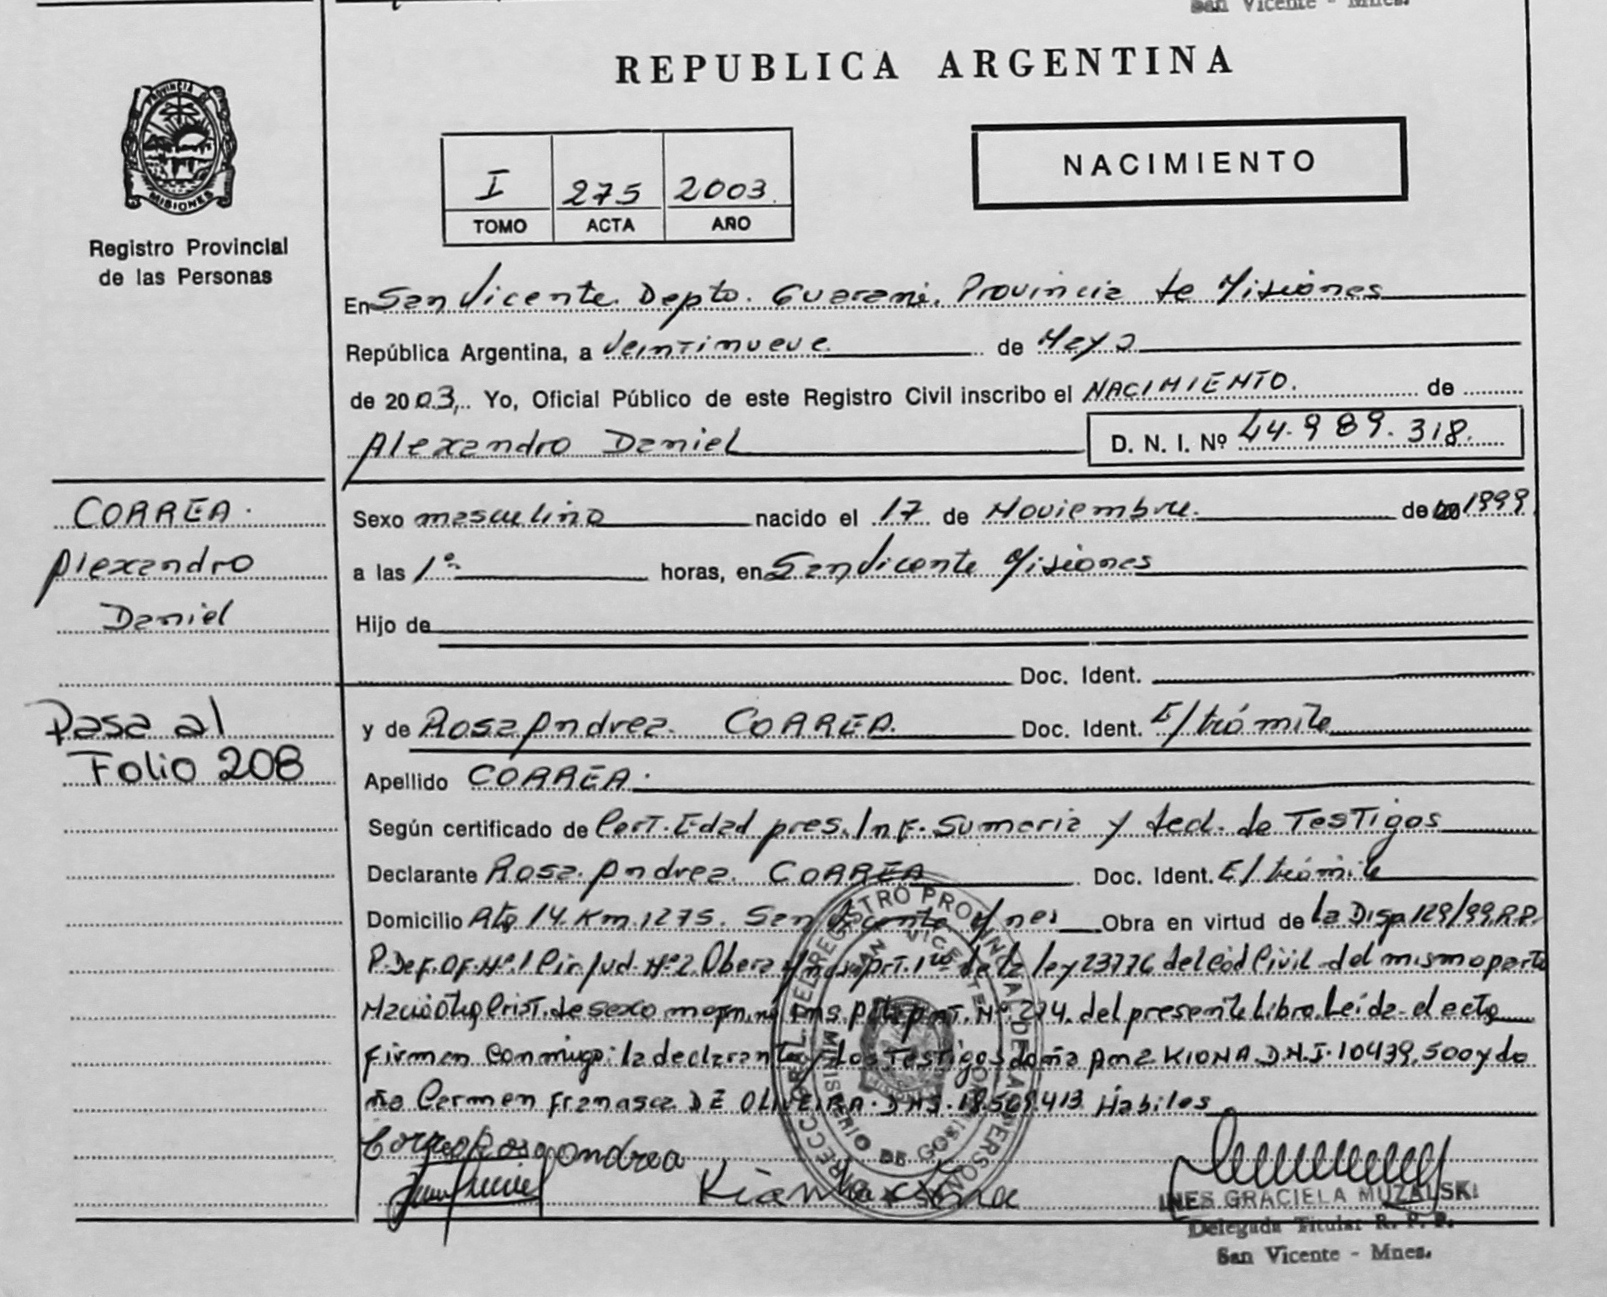 San Vicente - Mnes.
REPUBLICA ARGENTINA
PROVINCIA DE
MISIONES
Registro Provincial
de las Personas
I 275 2003
TOMO ACTA AÑO
NACIMIENTO
En San Vicente. Depto. Guarani. Provincia de Misiones
República Argentina, a Veintinueve de Mayo
de 2003, Yo, Oficial Público de este Registro Civil inscribo el NACIMIENTO. de
Alexandro Daniel D. N. I. Nº 44.989.318.
CORREA.
Alexandro
Daniel
Pasa al
Folio 208
Sexo masculino nacido el 17 de Noviembre. de 1999
a las 1º horas, en San Vicente Misiones
Hijo de
Doc. Ident.
y de Rosa Andrea. CORREA. Doc. Ident. E/trámite
Apellido CORREA.
Según certificado de Cert. Edad pres. Inf. Sumaria y decl. de Testigos
Declarante Rosa. Andrea. CORREA Doc. Ident. E/trámite
Domicilio Rta 14. Km. 1275. San Vicente Mnes Obra en virtud de la Disp 129/99. R.P.
P. Def. Of. Nº. 1 Cir Jud. Nº 2 Obera Mnes Art. 1ro de la ley 23776 del Cod Civil del mismo parto
Nació de sexo Nº. 274. del presente Libro. Leida el acta
firman conmigo: la declarante y Los Testigos doña Ana KIONA. D.N.I. 10439.500 y do
ña Carmen Francisca DE OLIVEIRA. D.N.I. 18.569.413 Habiles
Correa Rosa andrea
INES GRACIELA MUZALSKI
Delegada Titular R. P. P.
San Vicente - Mnes.